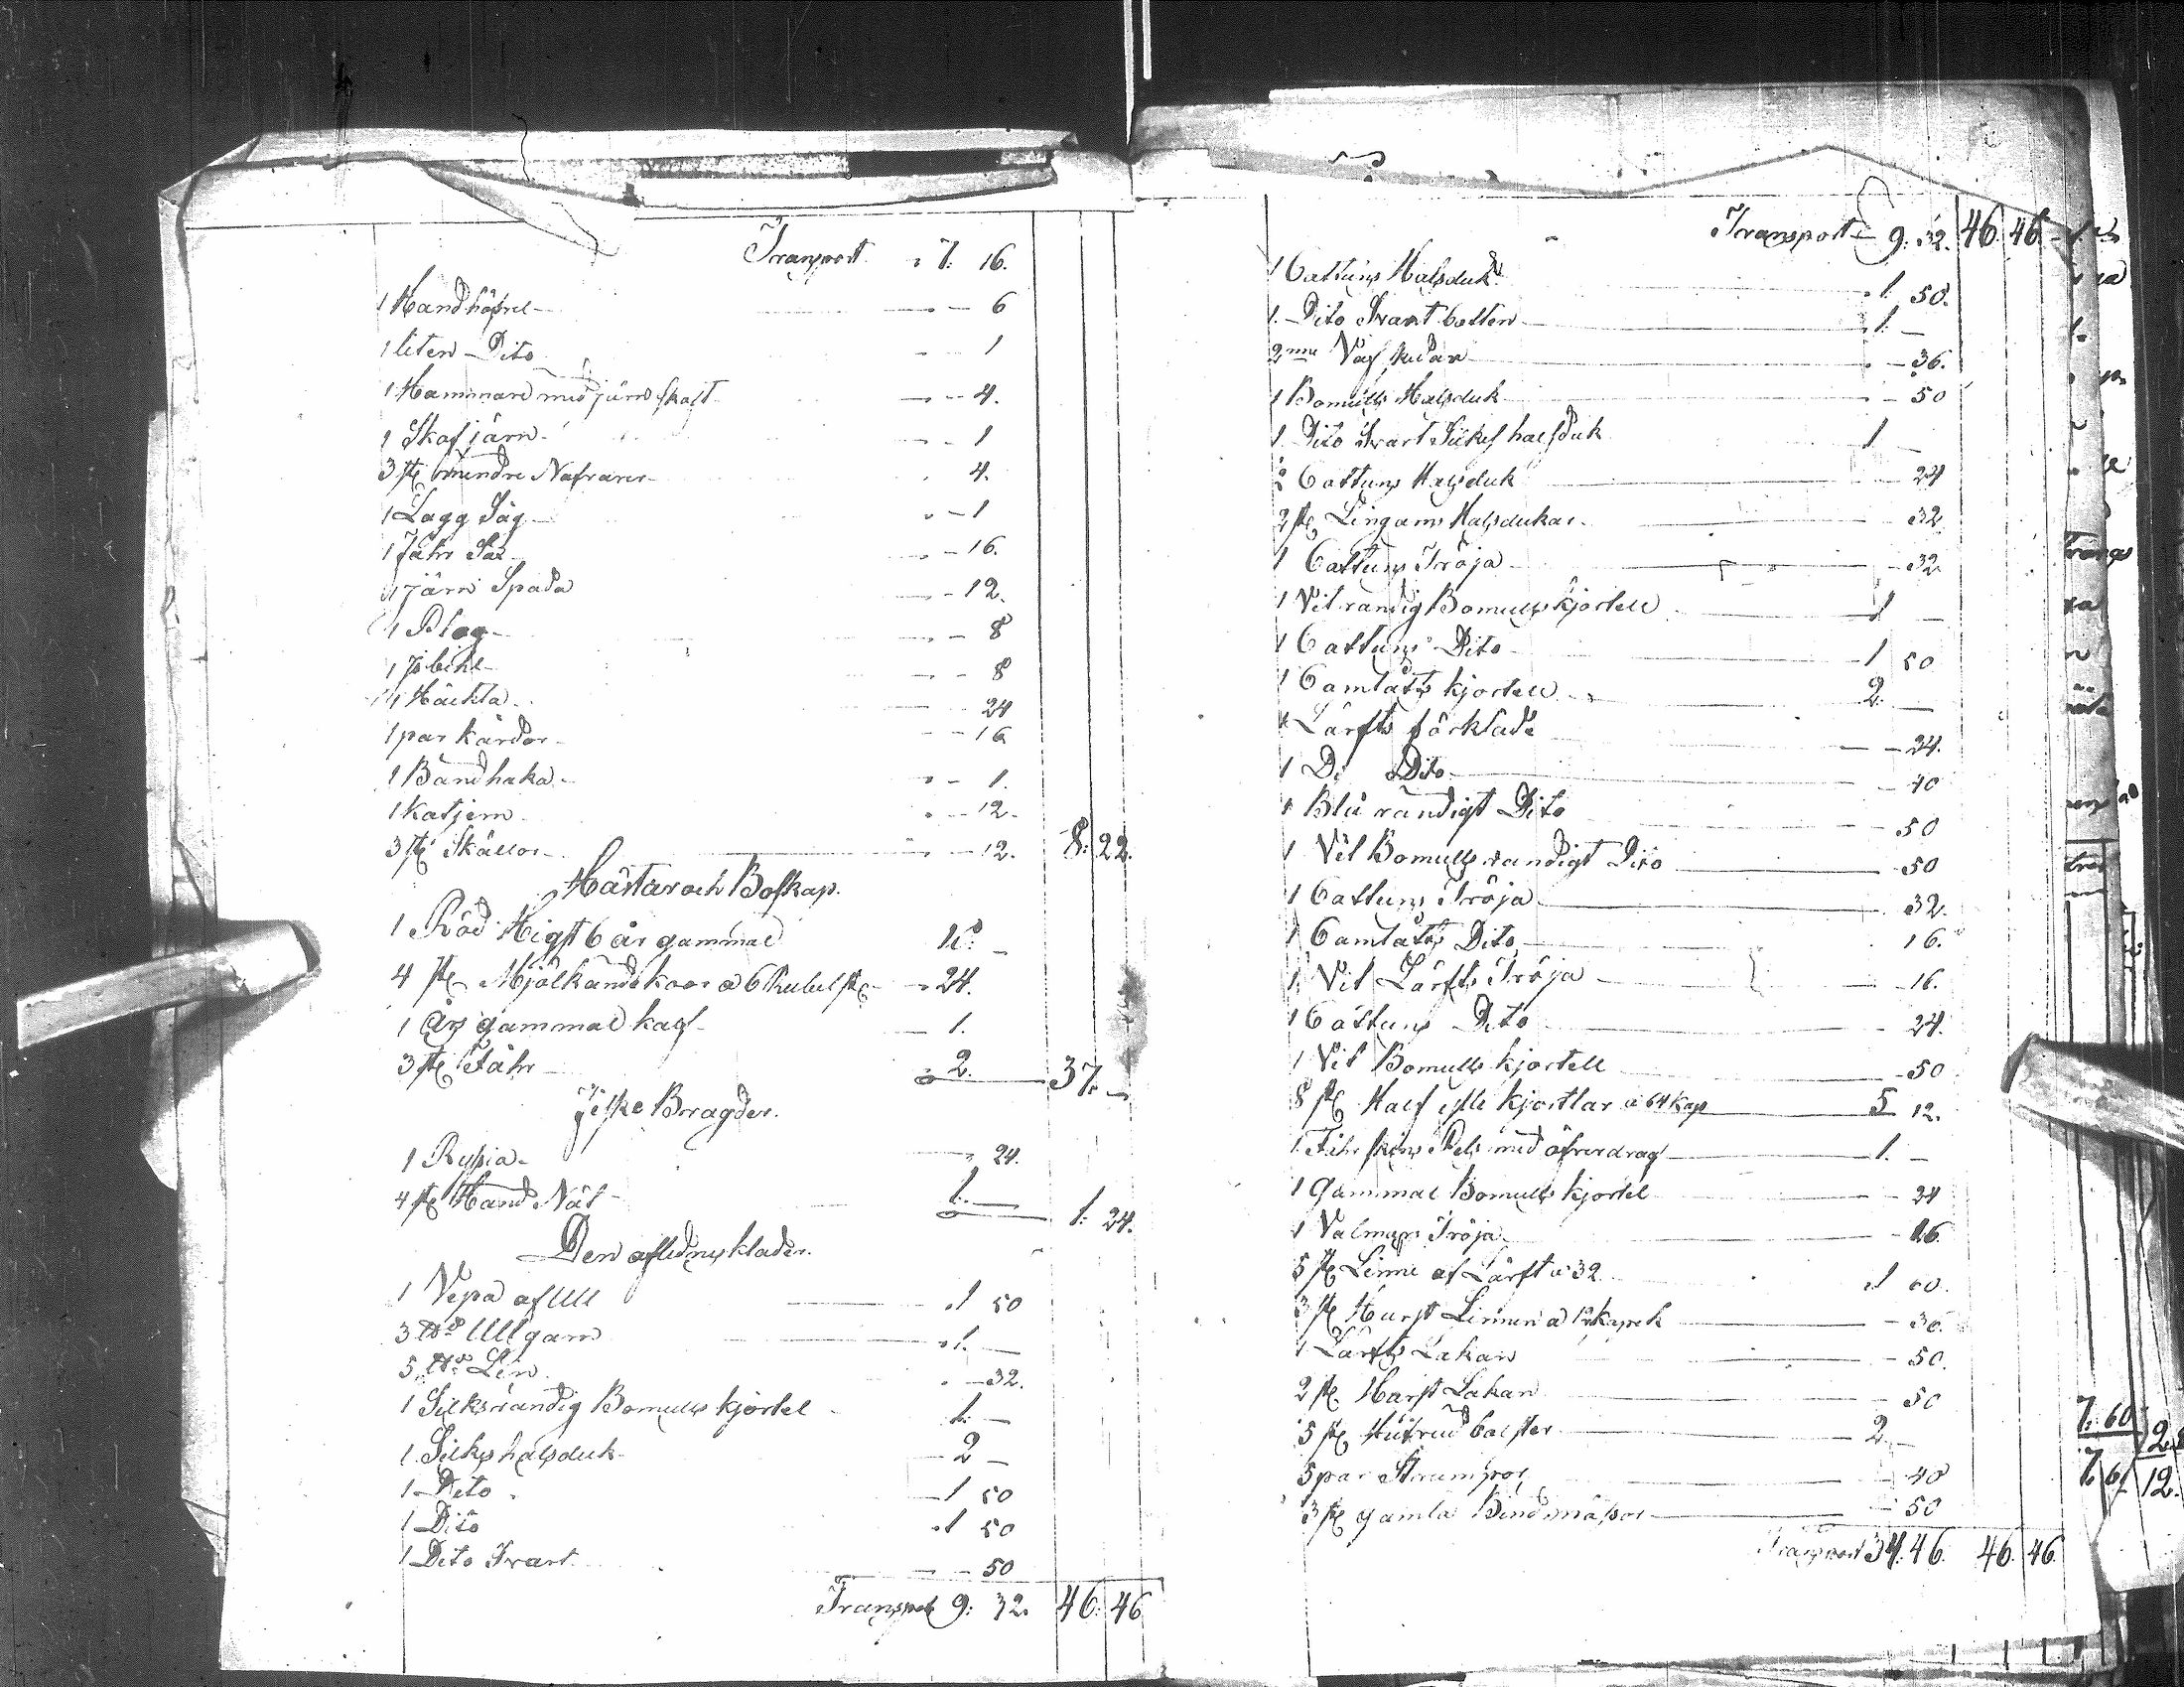 Transport 7: 16.
1 Handhöfvel 6
1 liten Dito 1
1 Hammare med järnskaft 4.
1 Skafjärn 1
3 st mindre Nafvarer 4.
1 Lagg Såg 1
1 Fåhr Sax 16.
1 järn Spada 12.
1 Plog 8
1 8
1 Häckla 24
1 par kardor 16
1 Bandhaka 1.
1 katjern 12.
3 st Skällor 12. 8: 22.
Hästar och Boskap.
1 Röd Higst 6 år gammal 10: —
4 st Mjölkande koor a 6 Rubel st 24.
1 års gammal kalf 1.
3 st Fåhr 2. 37. —
Fiske Bragder.
1 Ryssia 24.
4 st Hand Nät 1. — 1: 24.
Den aflednes klader.
1 Vepa af Ull 1 50
3 Ullgarn 1. —
5 Lin 32.
1 Silksrandig Bomulls kjortel 1. —
1 Silkes halsduk 2 —
1 Dito 1 50
1 Dito 1 50
1 Dito Svart 50
Transport 9: 32. 46: 46
Transport 9: 32. 46. 46.
1 Cattuns Halsduk 1. 50.
1 Dito Svart botten 1. —
2ne 36.
1 Bomulls Halsduk 50
1 Dito Svart Silkes halsduk 1
2 Cattuns Halsduk 24
2 st Lingams Halsdukar 32
1 Cattuns Tröja 32
1 Vit randig Bomulls kjortell 1 —
1 Cattuns Dito 1 50
1 Camlåts kjortell 2. —
1 Lärfts förklade 24.
1 Di Dito 40
1 Blå randigt Dito 50
1 Vit Bomulls randigt Dito 50
1 Cattuns Tröja 32.
1 Camlåts Dito 16.
1 Vit Lärfts Tröja 16.
1 Cattuns Dito 24.
1 Vit Bomulls kjortell 50
8 st Half ylle kjortlar a 64 kop 5 12.
1 Fåhrskins Pels med öfverdrag 1. —
1 gammal Bomulls kjortel 24
1 Valmars Tröja 16
5 st Linne af Lärft a 32 1 60.
3 st Hurst Linnen a 12 kopek 36.
1 Lärfts Lakan 50.
2 st Hurst Lakan 50
5 st 2. —
5 par Strumpor 40
3 st gamla Bindmössor 50
Transport 34. 46. 46. 46
7: 60